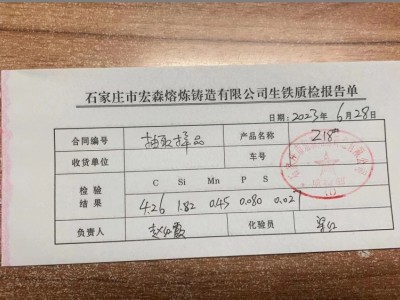 石家庄市宏森熔炼铸造有限公司生铁质检报告单
日期：2023年6月28日
合同编号 抽取样品 产品名称 Z18#
收货单位 车号
C Si Mn P S
检验结果 4.26 1.82 0.45 0.080 0.027
负责人 化验员